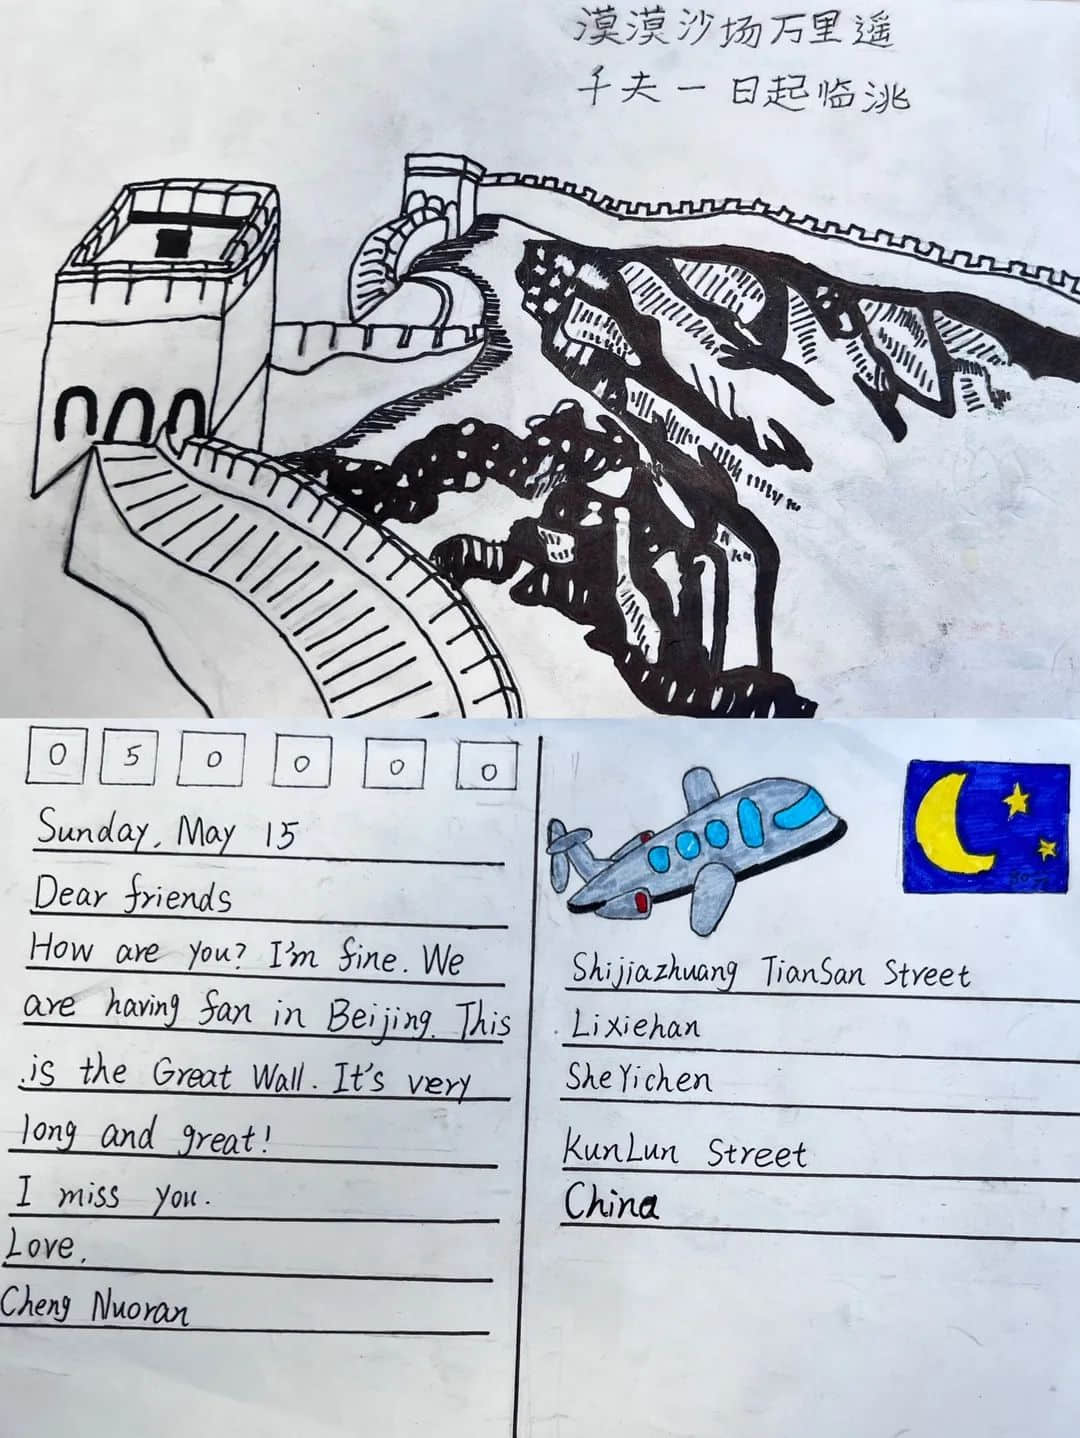 漠漠沙场万里遥
千夫一日起临洮
0 5 0 0 0 0
Sunday, May 15
Dear friends
How are you? I'm fine. We
are having fan in Beijing. This
is the Great Wall. It's very
long and great!
I miss you.
Love,
Cheng Nuoran
Shijiazhuang TianSan Street
Lixiehan
SheYichen
KunLun Street
China